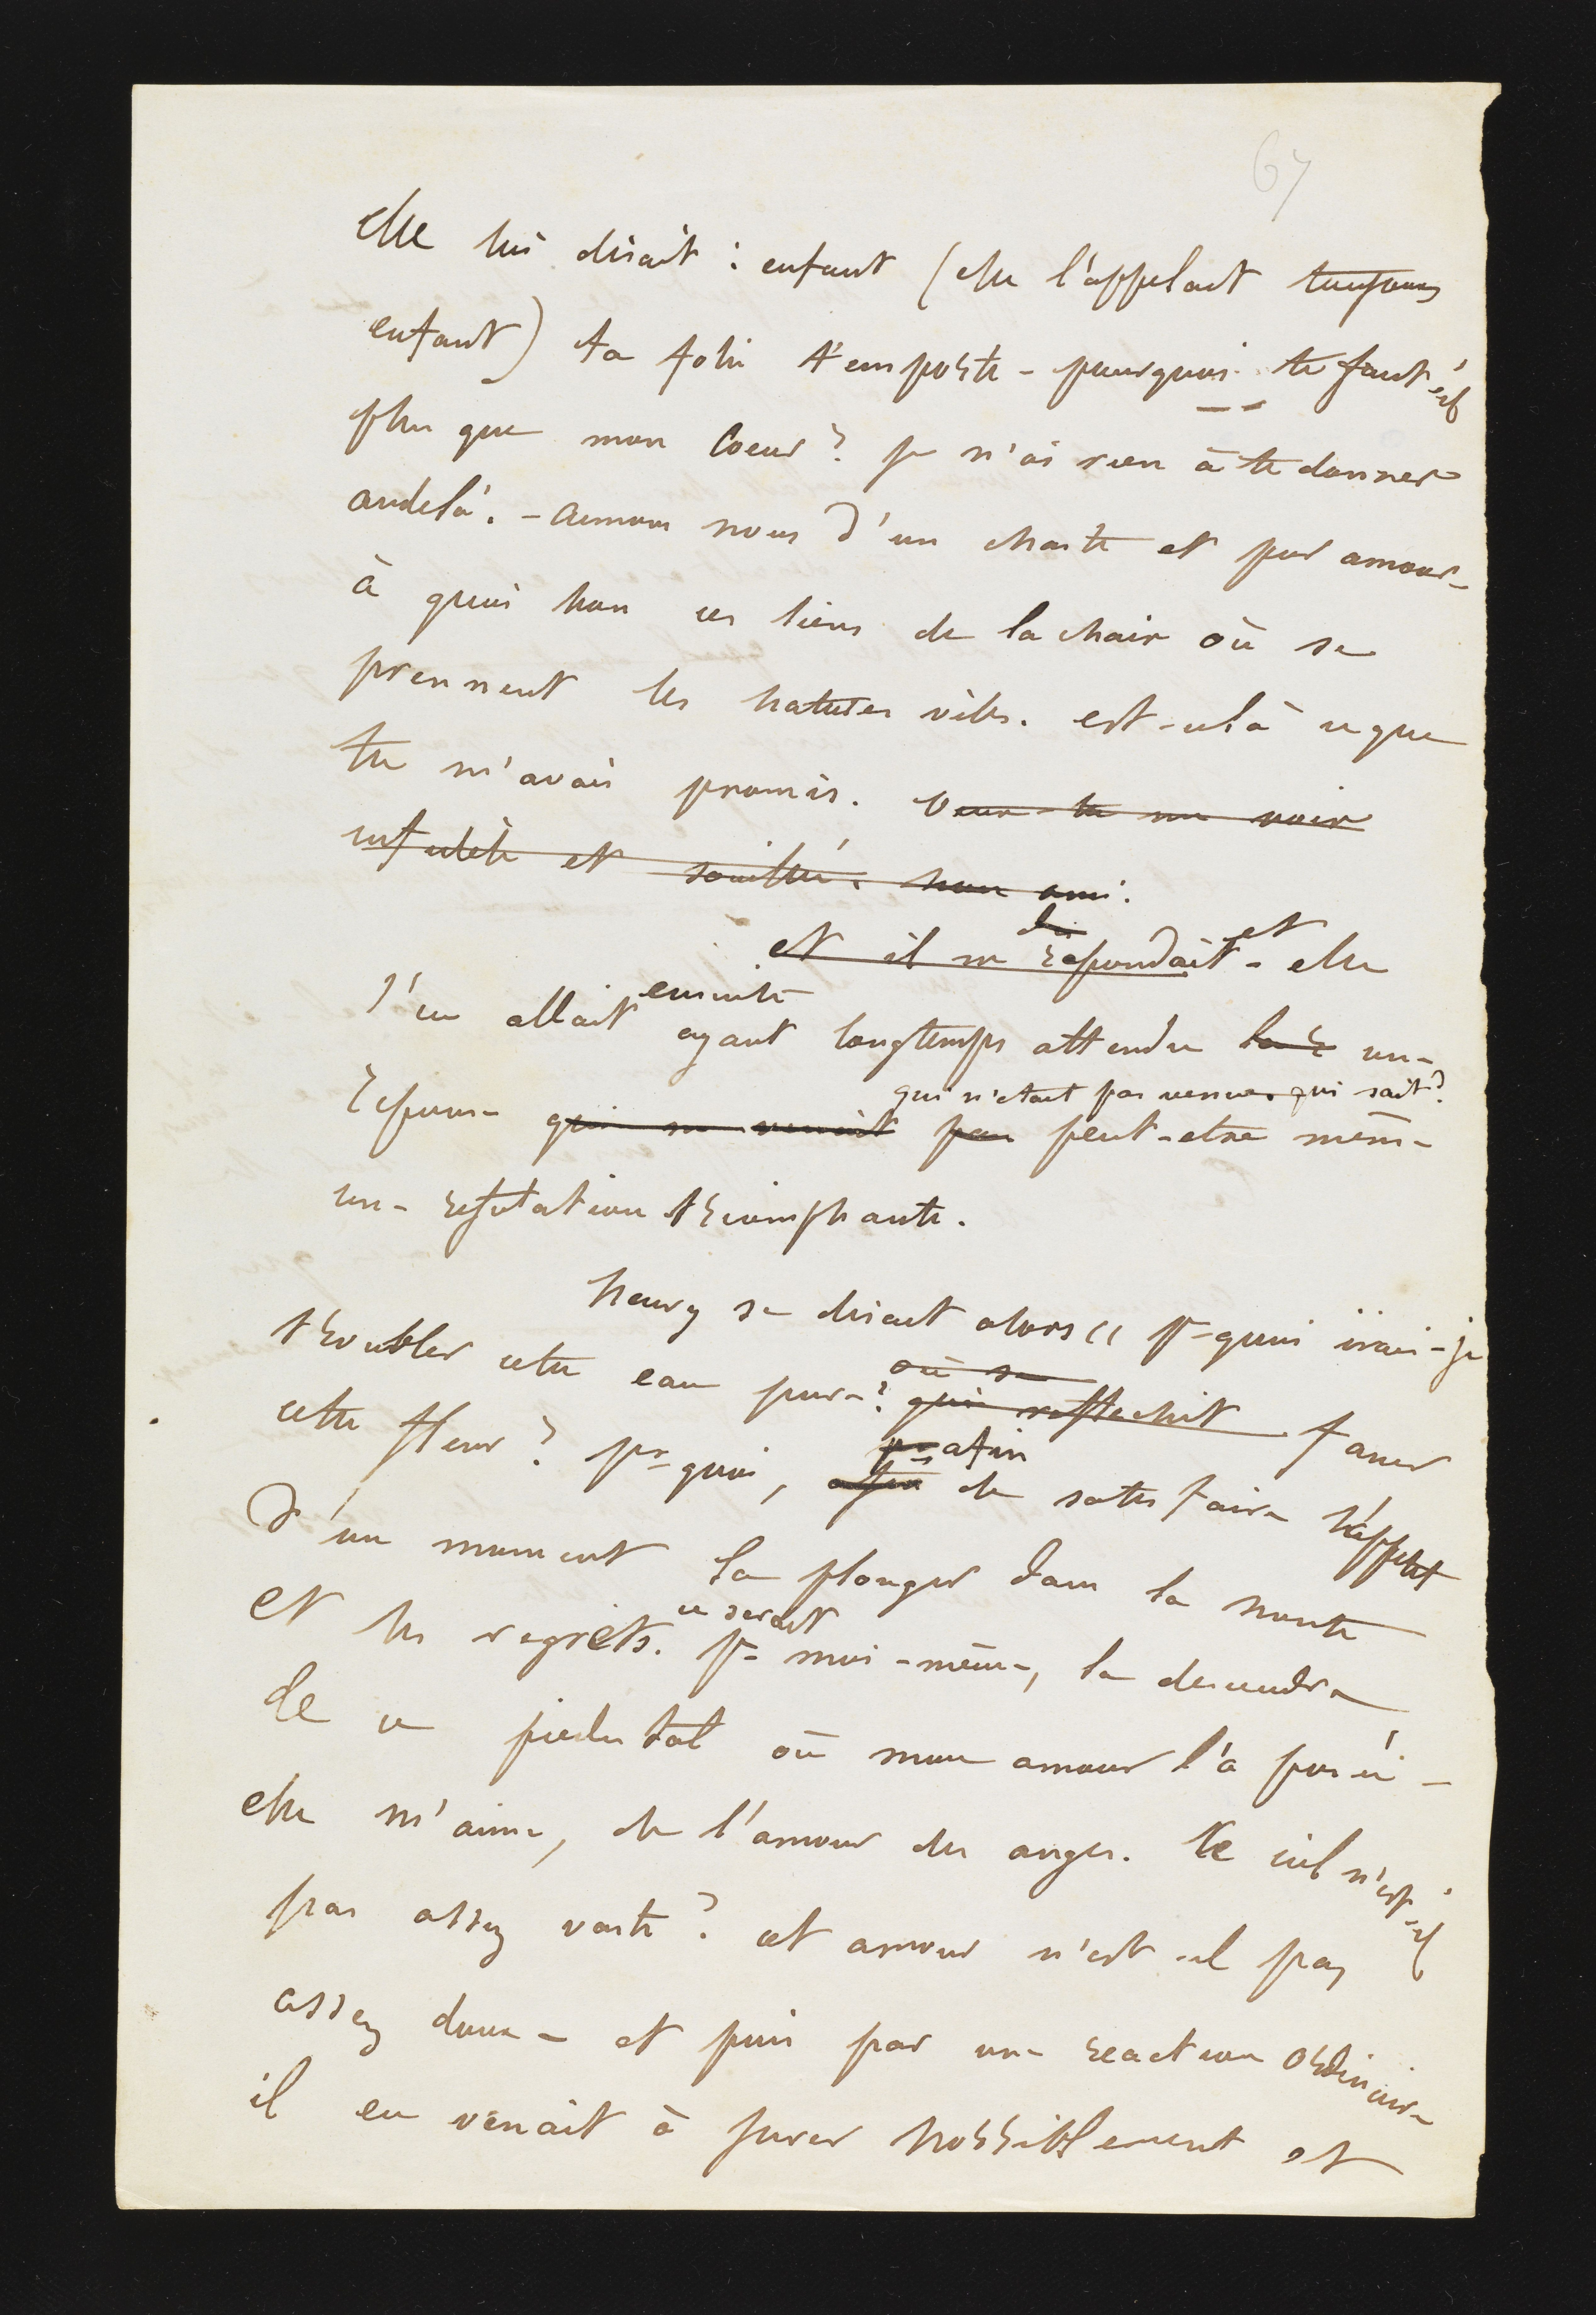 67
elle lui disait : enfant (elle l'appelait toujours
enfant) ta folie t'emporte - pourquoi te faut-il
plus que mon coeur? je n'ai rien à te donner
audelà. - aimons nous d'un chaste et pur amour -
à quoi bon ces liens de la chair où se
prennent les natures viles. est-ce là ce que
tu m'avais promis. Veux-tu me voir
infidèle et souillée. non ami.
lui et
et il ne repondait - elle
ensuite
s'en allait ayant longtemps attendu la r une
qui n'était pas venue. qui sait?
reponse qui ne venait pas peut-etre même
une refutation triomphante.
henry se disait alors « pr quoi irai-je
où se
troubler cette eau pure? qui reflechit faner
afin
cette fleur? pr quoi, afin de satisfaire l'appetit
d'un moment la plonger dans la honte
ce serait
et les regrets. pr moi-même, la descendre
de ce piedestal où mon amour l'a posée -
elle m'aime, de l'amour des anges. le ciel n'est-il
pas assez vaste? cet amour n'est-il pas
assez doux - et puis par une reaction ordinaire
il en venait à jurer horriblement et